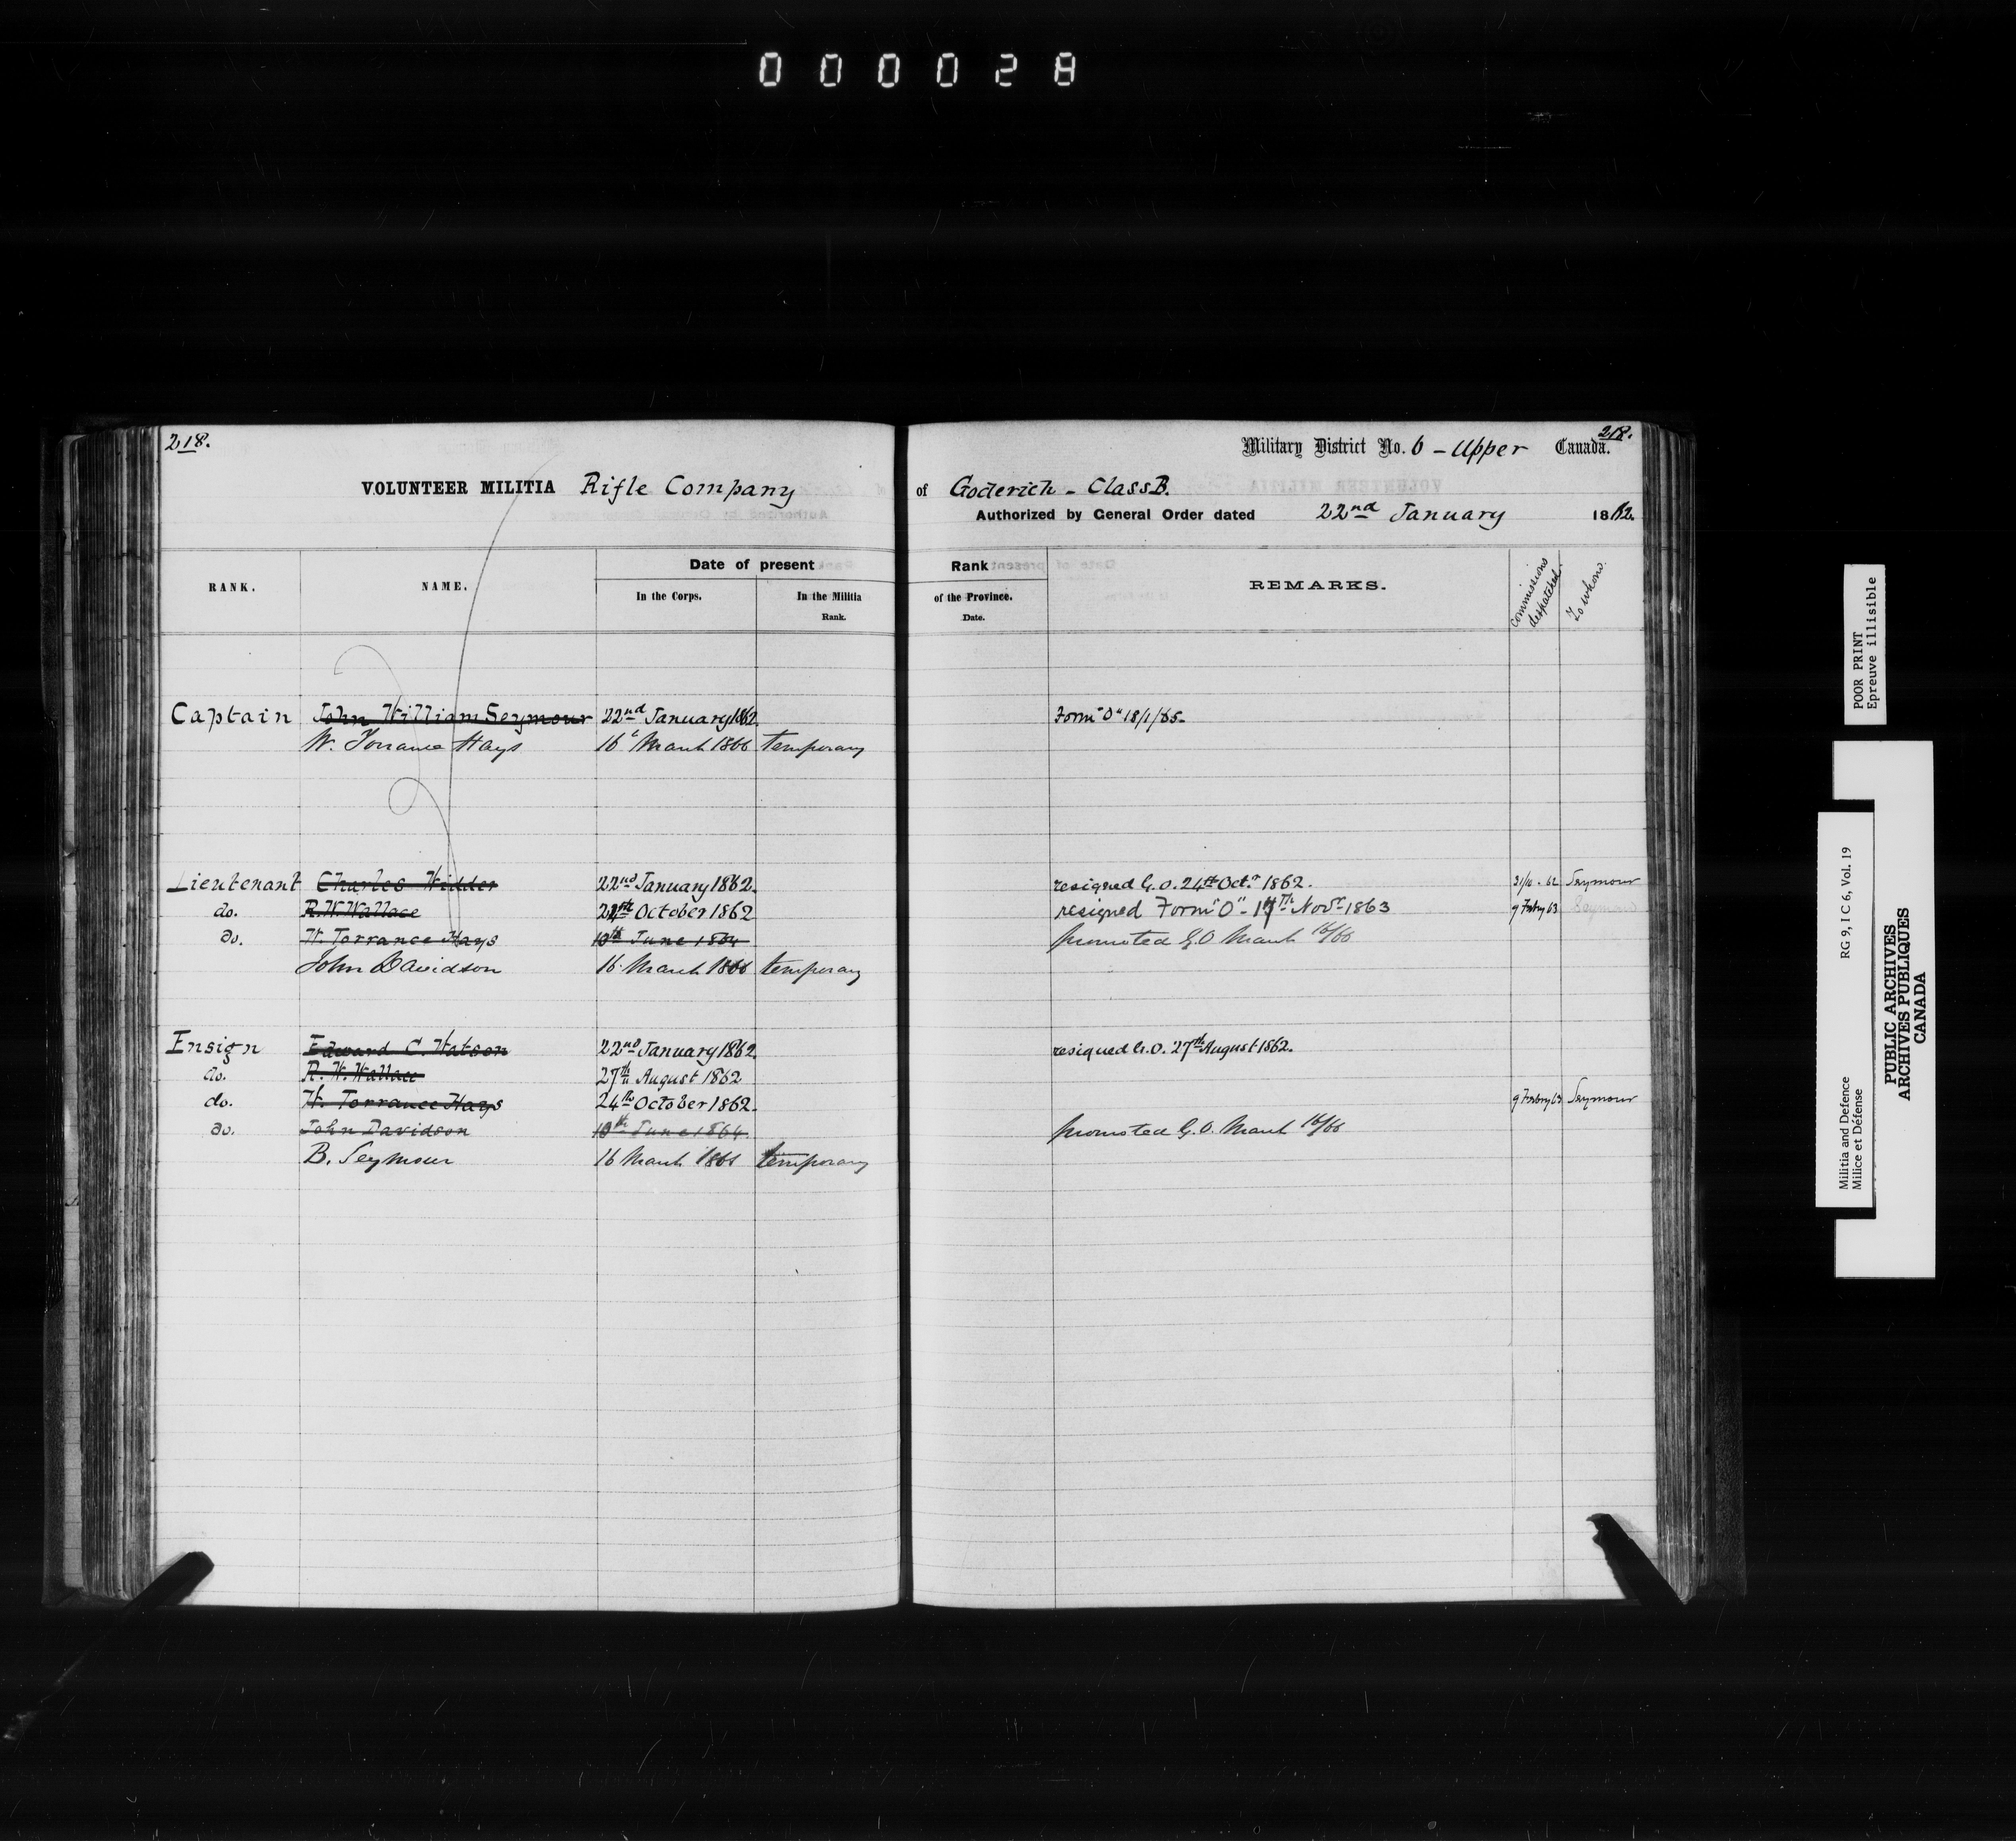 000028
218.
218.
Military District No. 6 - Upper Canada.
VOLUNTEER MILITIA Rifle Company of Goderich - Class B.
Authorized by General Order dated 22nd January 1862.
RANK. NAME. Date of present Rank REMARKS. Commissions despatched. To whom.
In the Corps. In the Militia Rank. of the Province. Date.
Captain John William Seymour 22nd January 1862. Form "O" 18/1/65-
W. Torrance Hays 16 March 1866 temporary
Lieutenant Charles Widder 22nd January 1862. resigned G.O. 24th Octr 1862. 31/10.62 Seymour
do. R.W. Wallace 24th October 1862 resigned Form "O" - 17th Novr 1863 9 Febry 63 Seymour
do. W. Torrance Hays 10th June 1864 promoted G.O March 16/66
John Davidson 16 March 1866 temporary
Ensign Edward C. Watson 22nd January 1862. resigned G.O. 27th August 1862.
do. R. W. Wallace 27th August 1862
do. W. Torrance Hays 24th October 1862. 9 Febry 63 Seymour
do. John Davidson 10th June 1864. promoted G.O. March 16/66
B. Seymour 16 March 1866 temporary
POOR PRINT
Epreuve illisible
RG 9, I C 6, Vol. 19
Militia and Defence
Milice et Défense
PUBLIC ARCHIVES
ARCHIVES PUBLIQUES
CANADA